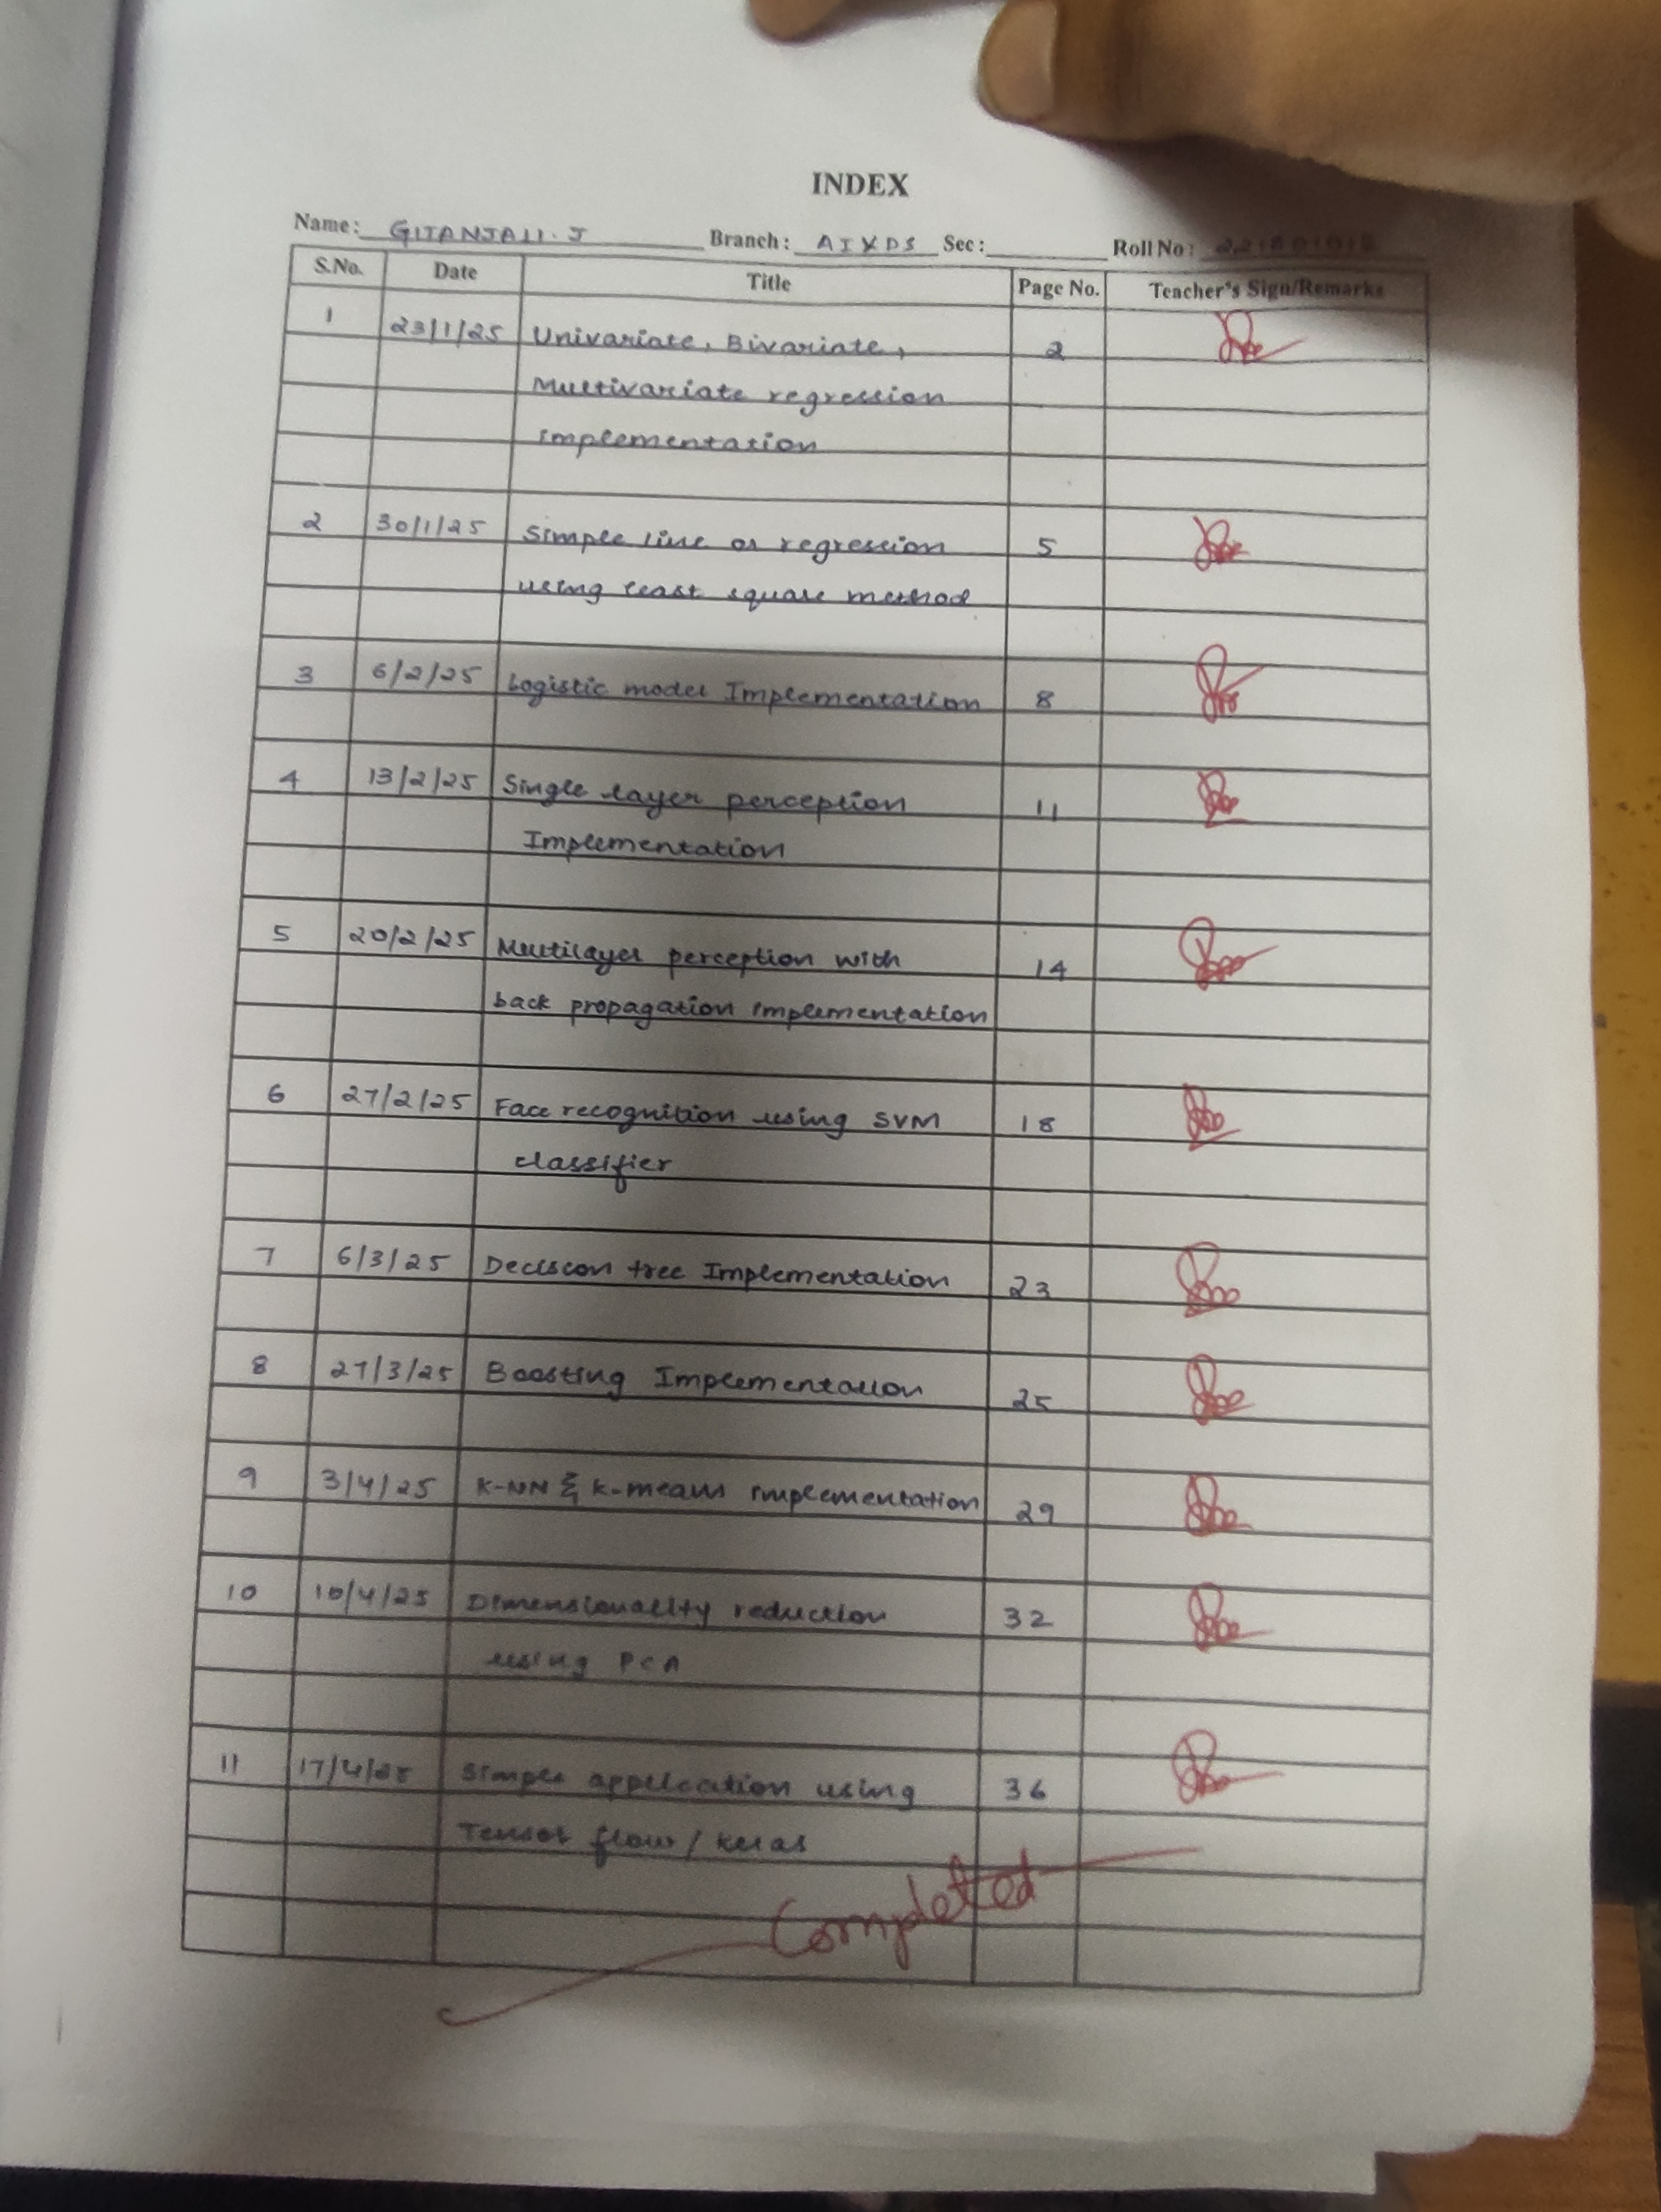 INDEX
Name: GITANJALI. J Branch: AI&DS Sec: Roll No:
S.No. Date Title Page No. Teacher's Sign/Remarks
1 23/1/25 Univariate, Bivariate, 2
Multivariate regression
implementation
2 30/1/25 Simple line or regression 5
using least square method
3 6/2/25 Logistic model Implementation 8
4 13/2/25 Single layer perception 11
Implementation
5 20/2/25 Multilayer perception with 14
back propagation implementation
6 27/2/25 Face recognition using SVM 18
classifier
7 6/3/25 Decision tree Implementation 23
8 27/3/25 Boosting Implementation 25
9 3/4/25 K-NN & k-means implementation 29
10 10/4/25 Dimensionality reduction 32
using PCA
11 17/4/25 Simple application using 36
Tensor flow / keras
Completed